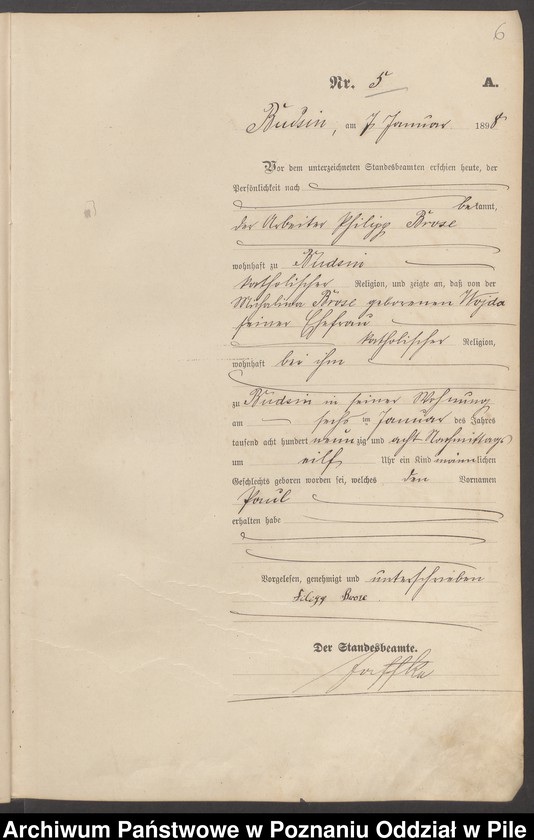 6
Nr. 5 A.
Budsin, am 7 Januar 1898
Vor dem unterzeichneten Standesbeamten erschien heute, der
Persönlichkeit nach
bekannt,
der Arbeiter Philipp Brose
wohnhaft zu Budsin
katholischer Religion, und zeigte an, daß von der
Michalina Brose geborenen Wojda
seiner Ehefrau
katholischer Religion,
wohnhaft bei ihm
zu Budsin in seiner Wohnung
am sechs ten Januar des Jahres
tausend acht hundert neun zig und acht Nachmittags
um eilf Uhr ein Kind männlichen
Geschlechts geboren worden sei, welches den Vornamen
Paul
erhalten habe
Vorgelesen, genehmigt und unterschrieben
Filipp Brose
Der Standesbeamte.
Jaffke
Archiwum Państwowe w Poznaniu Oddział w Pile